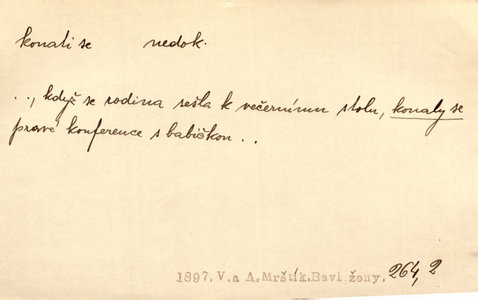 konati se nedok.
..., když se rodina sešla k večernímu stolu, konaly se
pravé konference s babičkou...
1897. V. a A. Mrštík. Bavl ženy. 264, 2